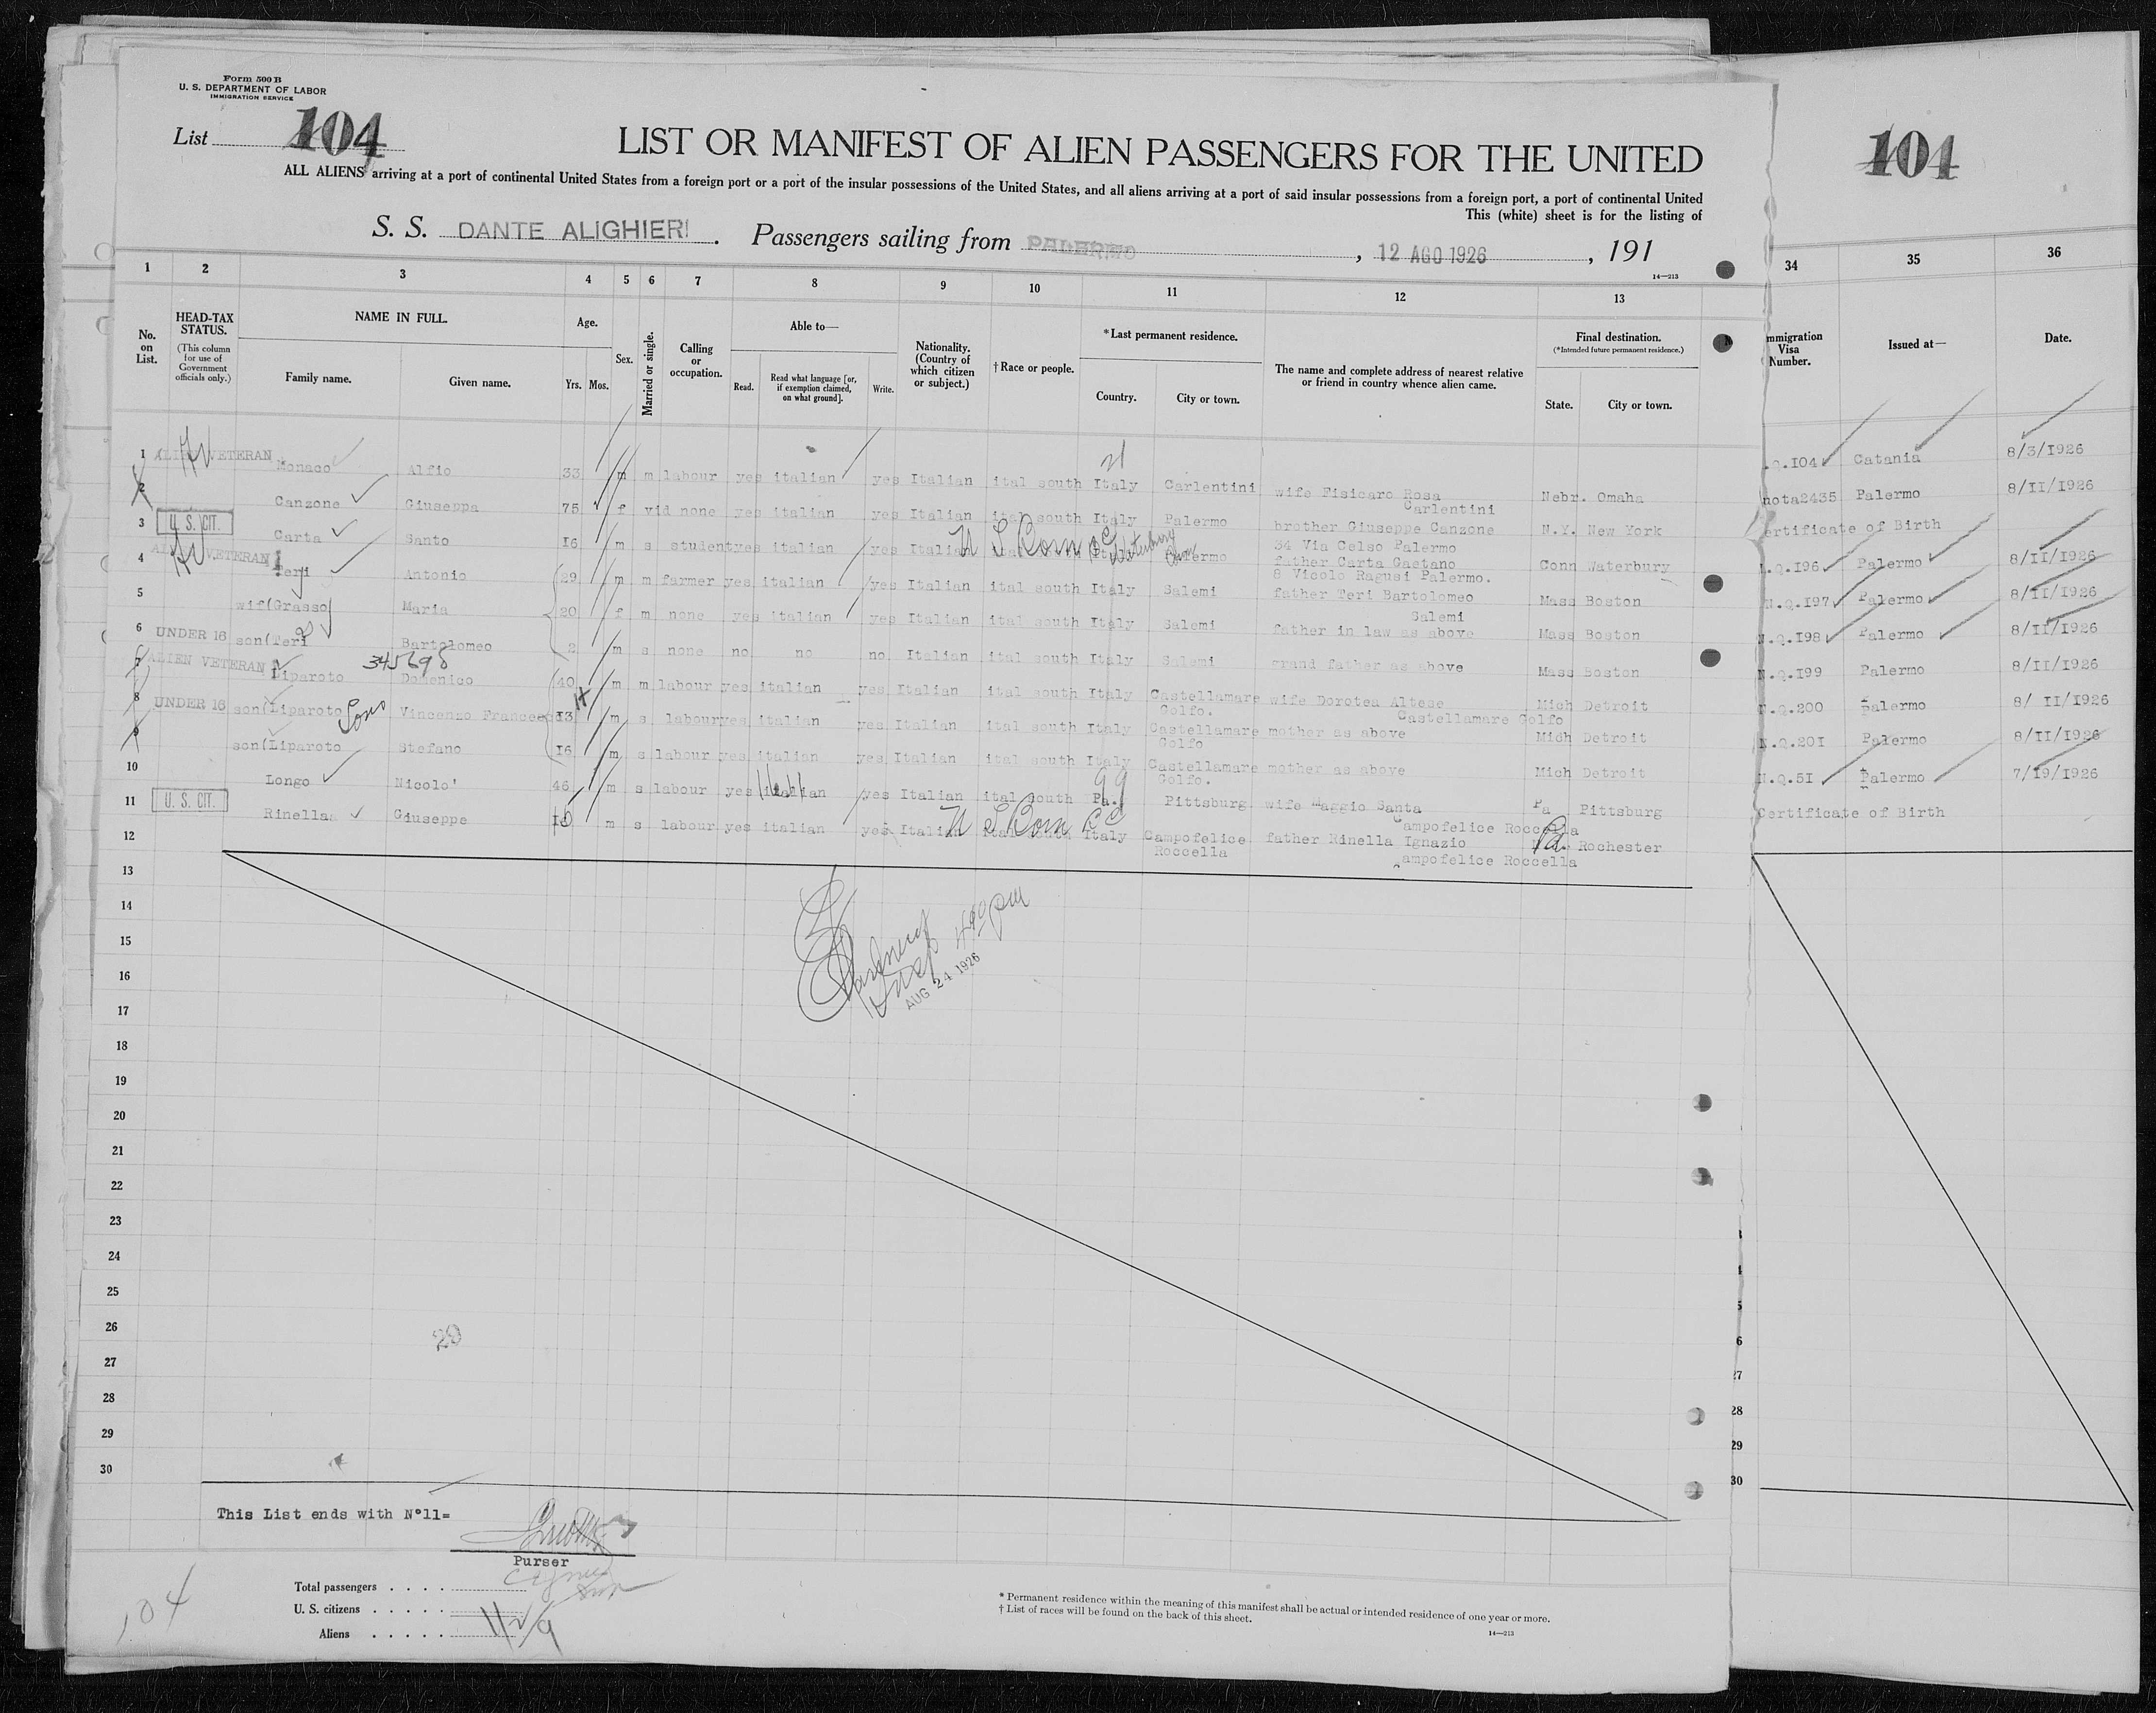 Form 500 B
U. S. DEPARTMENT OF LABOR
IMMIGRATION SERVICE
List 104
104
LIST OR MANIFEST OF ALIEN PASSENGERS FOR THE UNITED
ALL ALIENS arriving at a port of continental United States from a foreign port or a port of the insular possessions of the United States, and all aliens arriving at a port of said insular possessions from a foreign port, a port of continental United
This (white) sheet is for the listing of
S. S. DANTE ALIGHIERI . Passengers sailing from PALERMO , 12 AGO 1926 , 191
14—213
1 2 3 4 5 6 7 8 9 10 11 12 13 34 35 36
No. on List.
HEAD-TAX STATUS.
(This column for use of Government officials only.)
NAME IN FULL.
Family name. Given name.
Age.
Yrs. Mos.
Sex.
Married or single.
Calling or occupation.
Able to—
Read. Read what language [or, if exemption claimed, on what ground]. Write.
Nationality. (Country of which citizen or subject.)
† Race or people.
* Last permanent residence.
Country. City or town.
The name and complete address of nearest relative or friend in country whence alien came.
Final destination.
(*Intended future permanent residence.)
State. City or town.
mmigration Visa Number.
Issued at—
Date.
1 ALIEN VETERAN Monaco Alfio 33 m m labour yes italian yes Italian ital south Italy Carlentini wife Fisicaro Rosa Carlentini Nebr. Omaha .Q.104 Catania 8/3/1926
2 Canzone Giuseppa 75 f vid none yes italian yes Italian ital south Italy Palermo brother Giuseppe Canzone 34 Via Celso Palermo N.Y. New York nota2435 Palermo 8/II/1926
3 U. S. CIT. Carta Santo I6 m s student yes italian yes Italian U S Born Waterbury Conn Palermo father Carta Gaetano 8 Vicolo Ragusi Palermo. Conn Waterbury ertificate of Birth
4 AV ALIEN VETERAN Teri Antonio 29 m m farmer yes italian yes Italian ital south Italy Salemi father Teri Bartolomeo Salemi Mass Boston N.Q.I96 Palermo 8/II/1926
5 wif(Grasso Maria 20 f m none yes italian yes Italian ital south Italy Salemi father in law as above Mass Boston N.Q.I97 Palermo 8/II/1926
6 UNDER 16 son(Teri Bartolomeo 2 m s none no no no Italian ital south Italy Salemi grand father as above Mass Boston N.Q.I98 Palermo 8/II/1926
7 ALIEN VETERAN Liparoto 345698 Domenico 40 m m labour yes italian yes Italian ital south Italy Castellamare Golfo. wife Dorotea Altese Castellamare Golfo Mich Detroit N.Q.I99 Palermo 8/II/1926
8 UNDER 16 son(Liparoto Sons Vincenzo Francesco I3 m s labour yes italian yes Italian ital south Italy Castellamare Golfo mother as above Mich Detroit N.Q.200 Palermo 8/ II/1926
9 son(Liparoto Stefano I6 m s labour yes italian yes Italian ital south Italy Castellamare Golfo. mother as above Mich Detroit N.Q.20I Palermo 8/II/1926
10 Longo Nicolo' 46 m s labour yes italian yes Italian ital south Pa. Pittsburg wife Maggio Santa Campofelice Roccella Pa Pittsburg N.Q.5I Palermo 7/19/1926
11 U. S. CIT. Rinella Giuseppe m s labour yes italian yes Italian U S Born Italy Campofelice Roccella father Rinella Ignazio Campofelice Roccella Pa. Rochester Certificate of Birth
12
13
14
15
16
17
18
19
20
21
22
23
24
25
26
27
28
29
30
490 pm
AUG 24 1926
29
6
27
28
29
30
This List ends with N°11=
Purser
Total passengers . . . .
U. S. citizens . . . . .
Aliens . . . . .
11/2/9
104
* Permanent residence within the meaning of this manifest shall be actual or intended residence of one year or more.
† List of races will be found on the back of this sheet.
14—213